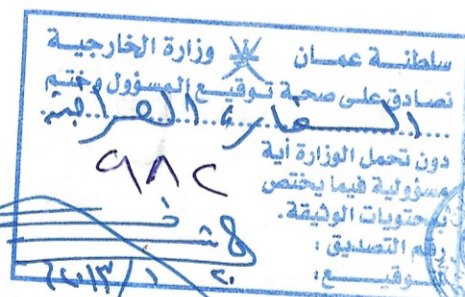 سلطنـــة عمـــان وزارة الخارجيـــة
نصادق على صحة توقيـع المسؤول وختم
السفارة العراقية
دون تحمل الوزارة أية
٩٨٢
مسؤولية فيما يختص
بمحتويات الوثيقة .
رقم التصديق :
التوقيـــع :
٢٠١٣/١/٢٠